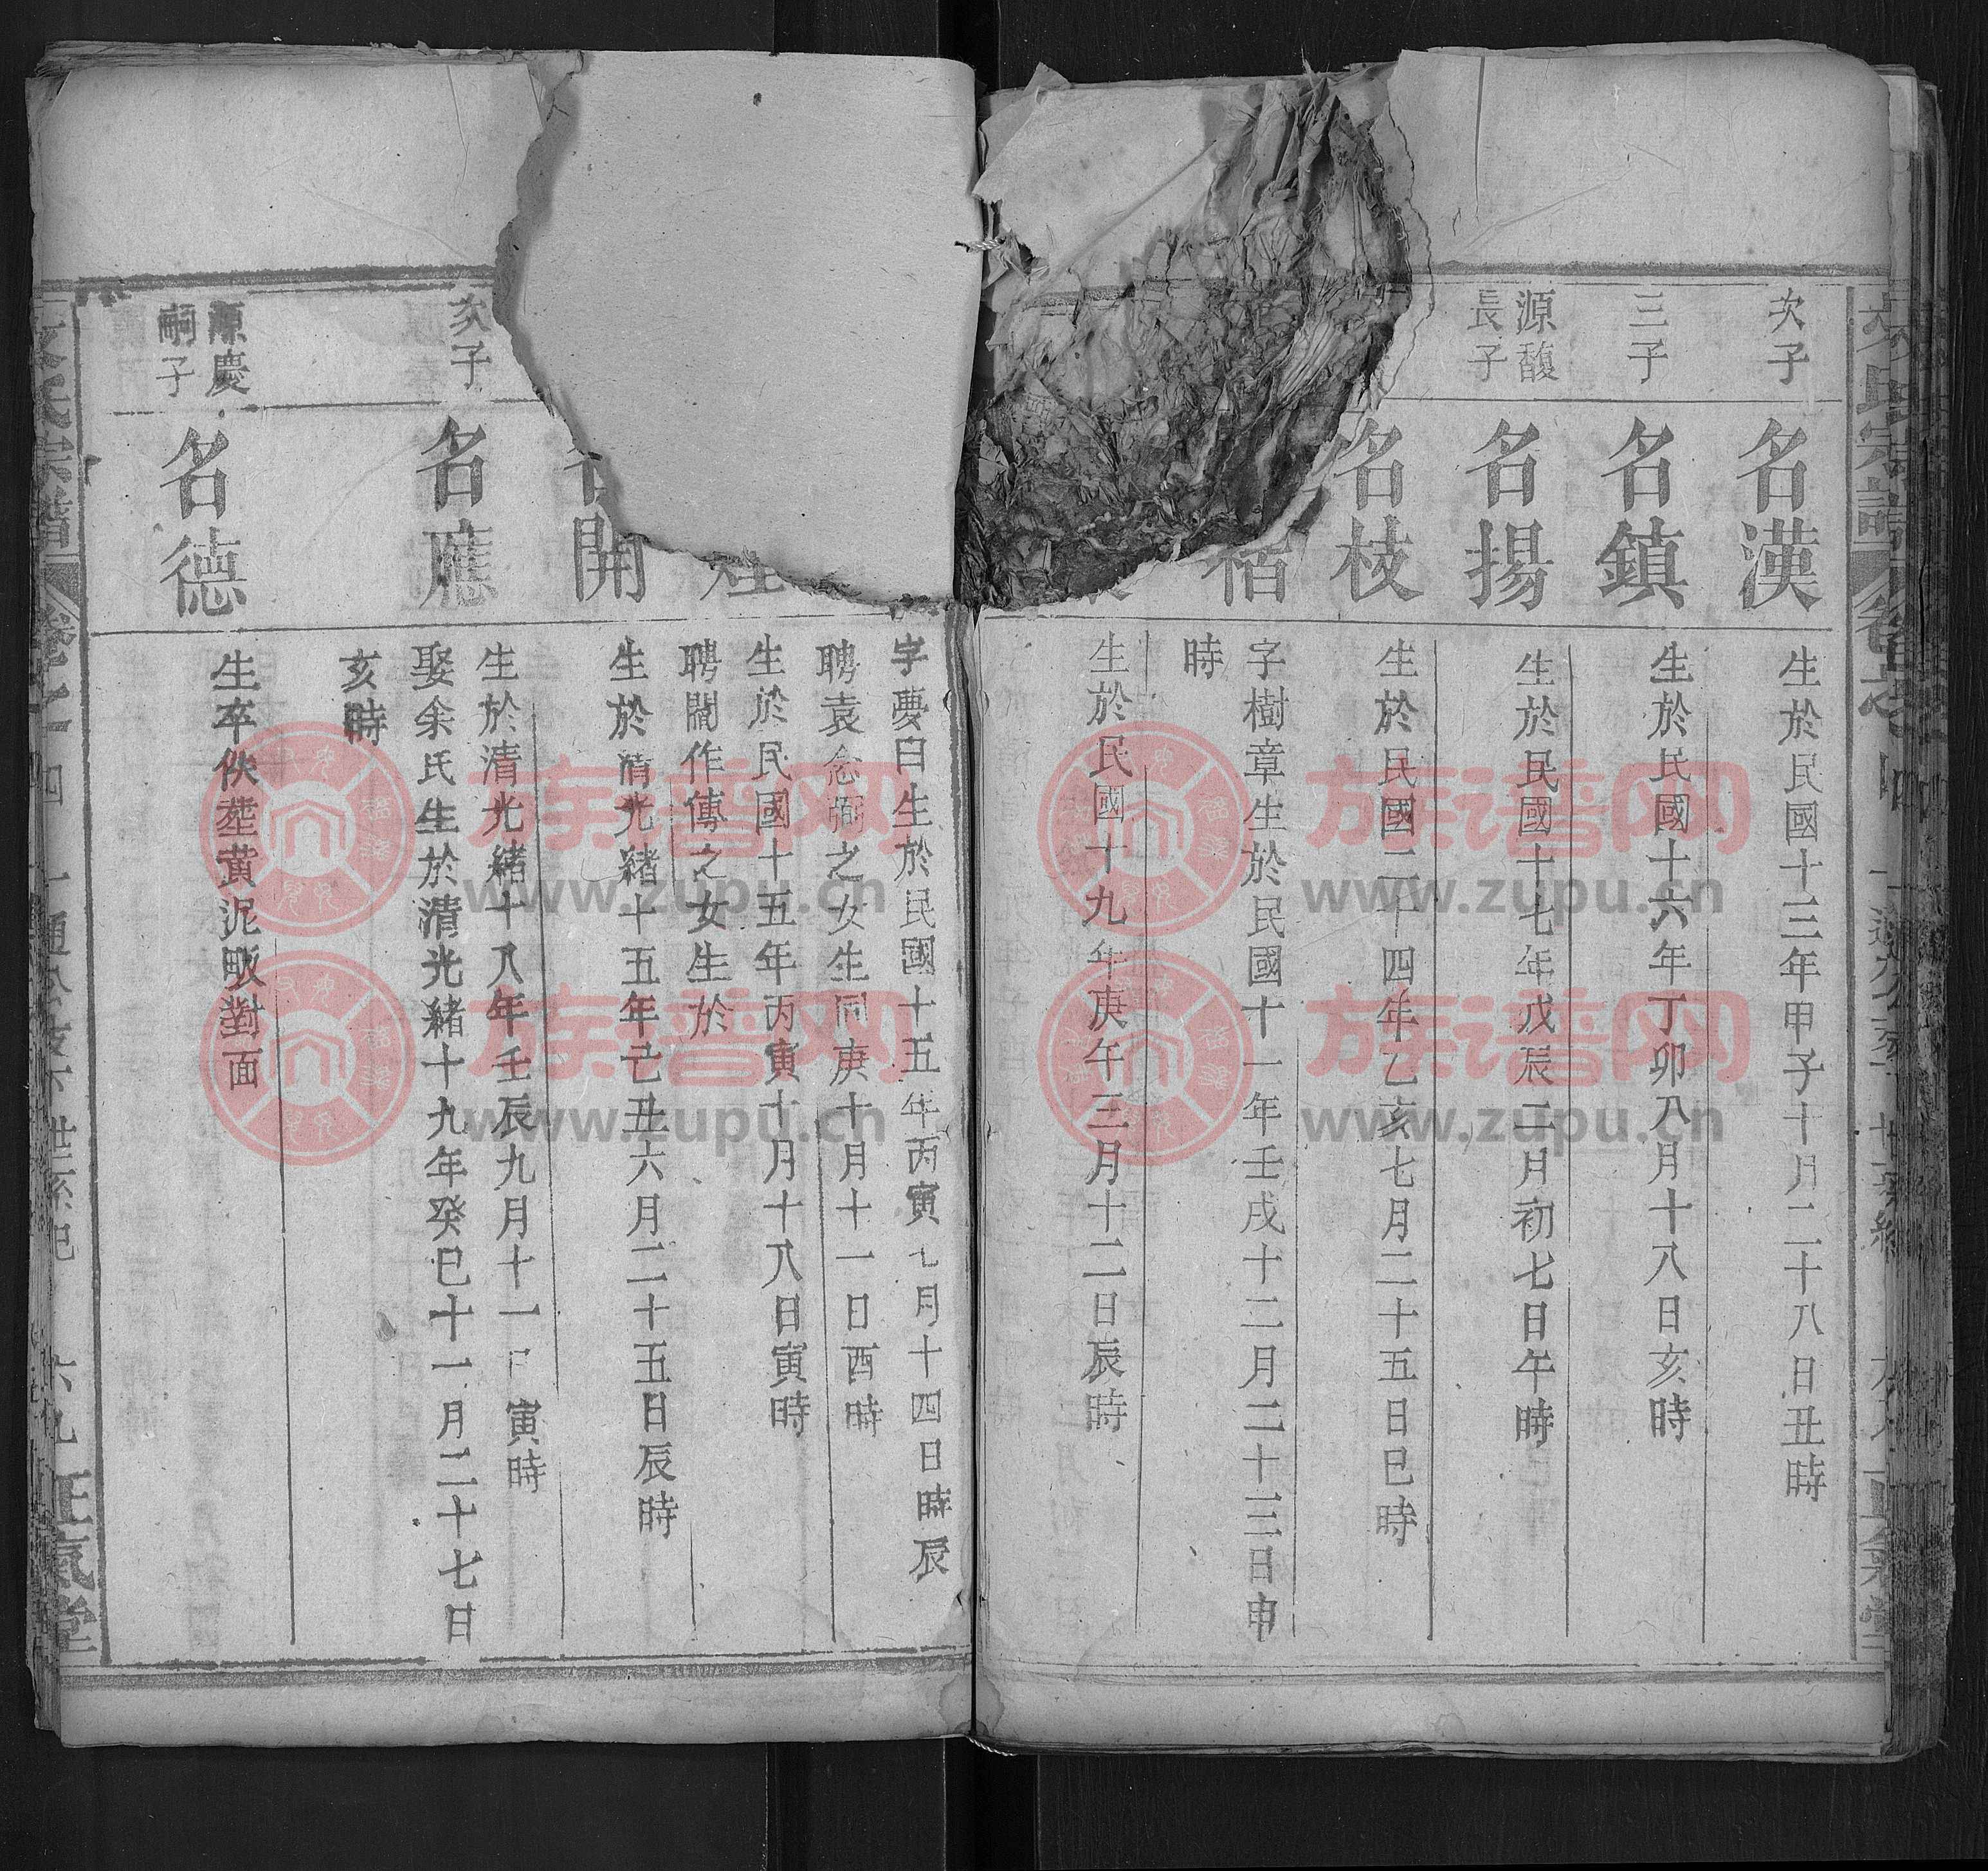 次子
名漢
生於民國十三年甲子十月二十八日丑時
三子
名鎮
生於民國十六年丁卯八月十八日亥時
源馥
長子
名揚
生於民國十七年戊辰二月初七日午時
名枝
生於民國二十四年乙亥七月二十五日巳時
字樹章生於民國十一年壬戌十二月二十三日申
時
生於民國十九年庚午三月十二日辰時
字夢白生於民國十五年丙寅七月十四日時辰
聘袁念弼之女生同庚十月十一日酉時
生於民國十五年丙寅十月十八日寅時
聘閻作傳之女生於
開
生於清光緒十五年己丑六月二十五日辰時
次子
名應
生於清光緒十八年壬辰九月十一日寅時
娶余氏生於清光緒十九年癸巳十一月二十七日
亥時
源慶
嗣子
名德
生卒佚塟黄泥畈對面
氏宗譜
卷之四
六九
正氣堂
族谱网
www.zupu.cn
族谱网
www.zupu.cn
族谱网
www.zupu.cn
族谱网
www.zupu.cn